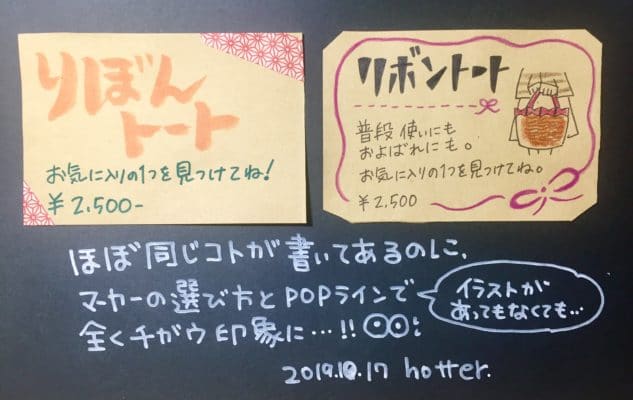 りぼん
トート
お気に入りの1つを見つけてね!
¥2,500-
リボントート
普段使いにも
およばれにも。
お気に入りの1つを見つけてね。
¥2,500
ほぼ同じコトが書いてあるのに、
マーカーの選び方とPOPラインで
全くチガウ印象に…!!
イラストが
あってもなくても…
2019.10.17 hotter.